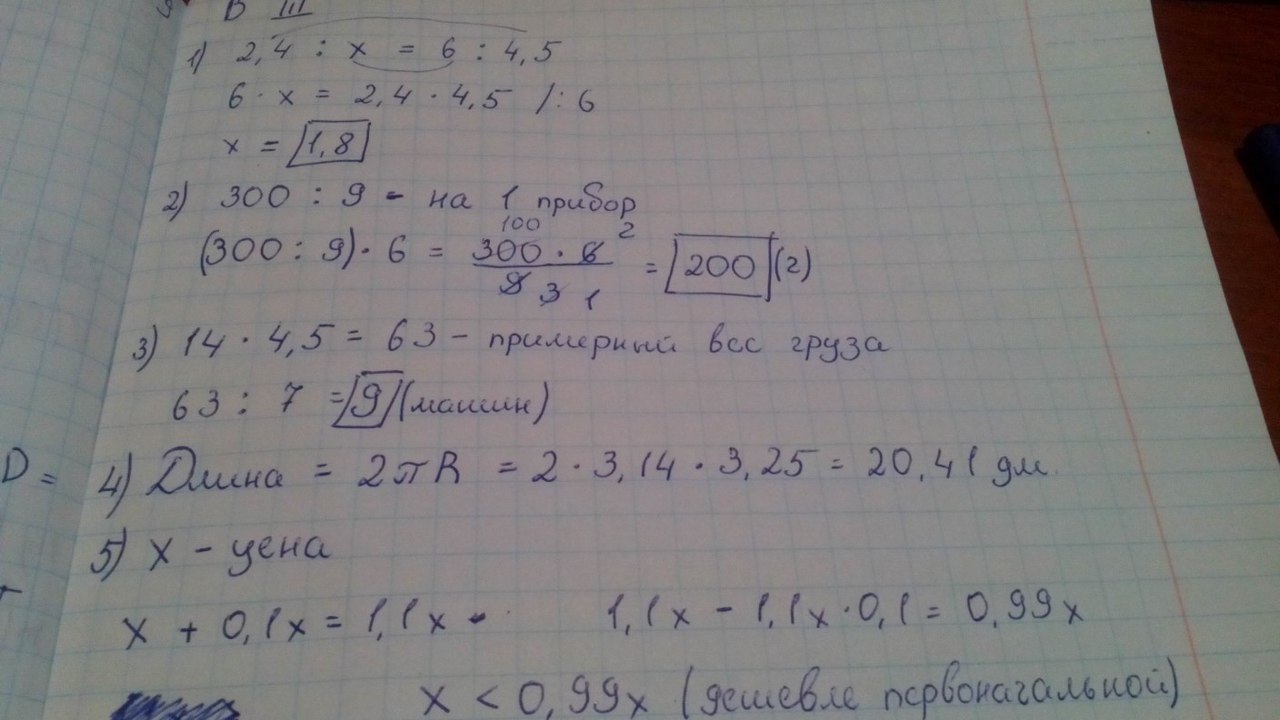 В III
1) 2,4 : x = 6 : 4,5
6 · x = 2,4 · 4,5 /: 6
x = 1,8
2) 300 : 9 - на 1 прибор
(300 : 9) · 6 = 300 · 6 / 9 100 2 3 1 = 200 (г)
3) 14 · 4,5 = 63 - примерный вес груза
63 : 7 = 9 (машин)
D =
4) Длина = 2πR = 2 · 3,14 · 3,25 = 20,41 дм
5) x - цена
x + 0,1x = 1,1x - 1,1x - 1,1x · 0,1 = 0,99x
x < 0,99x (дешевле первоначальной)